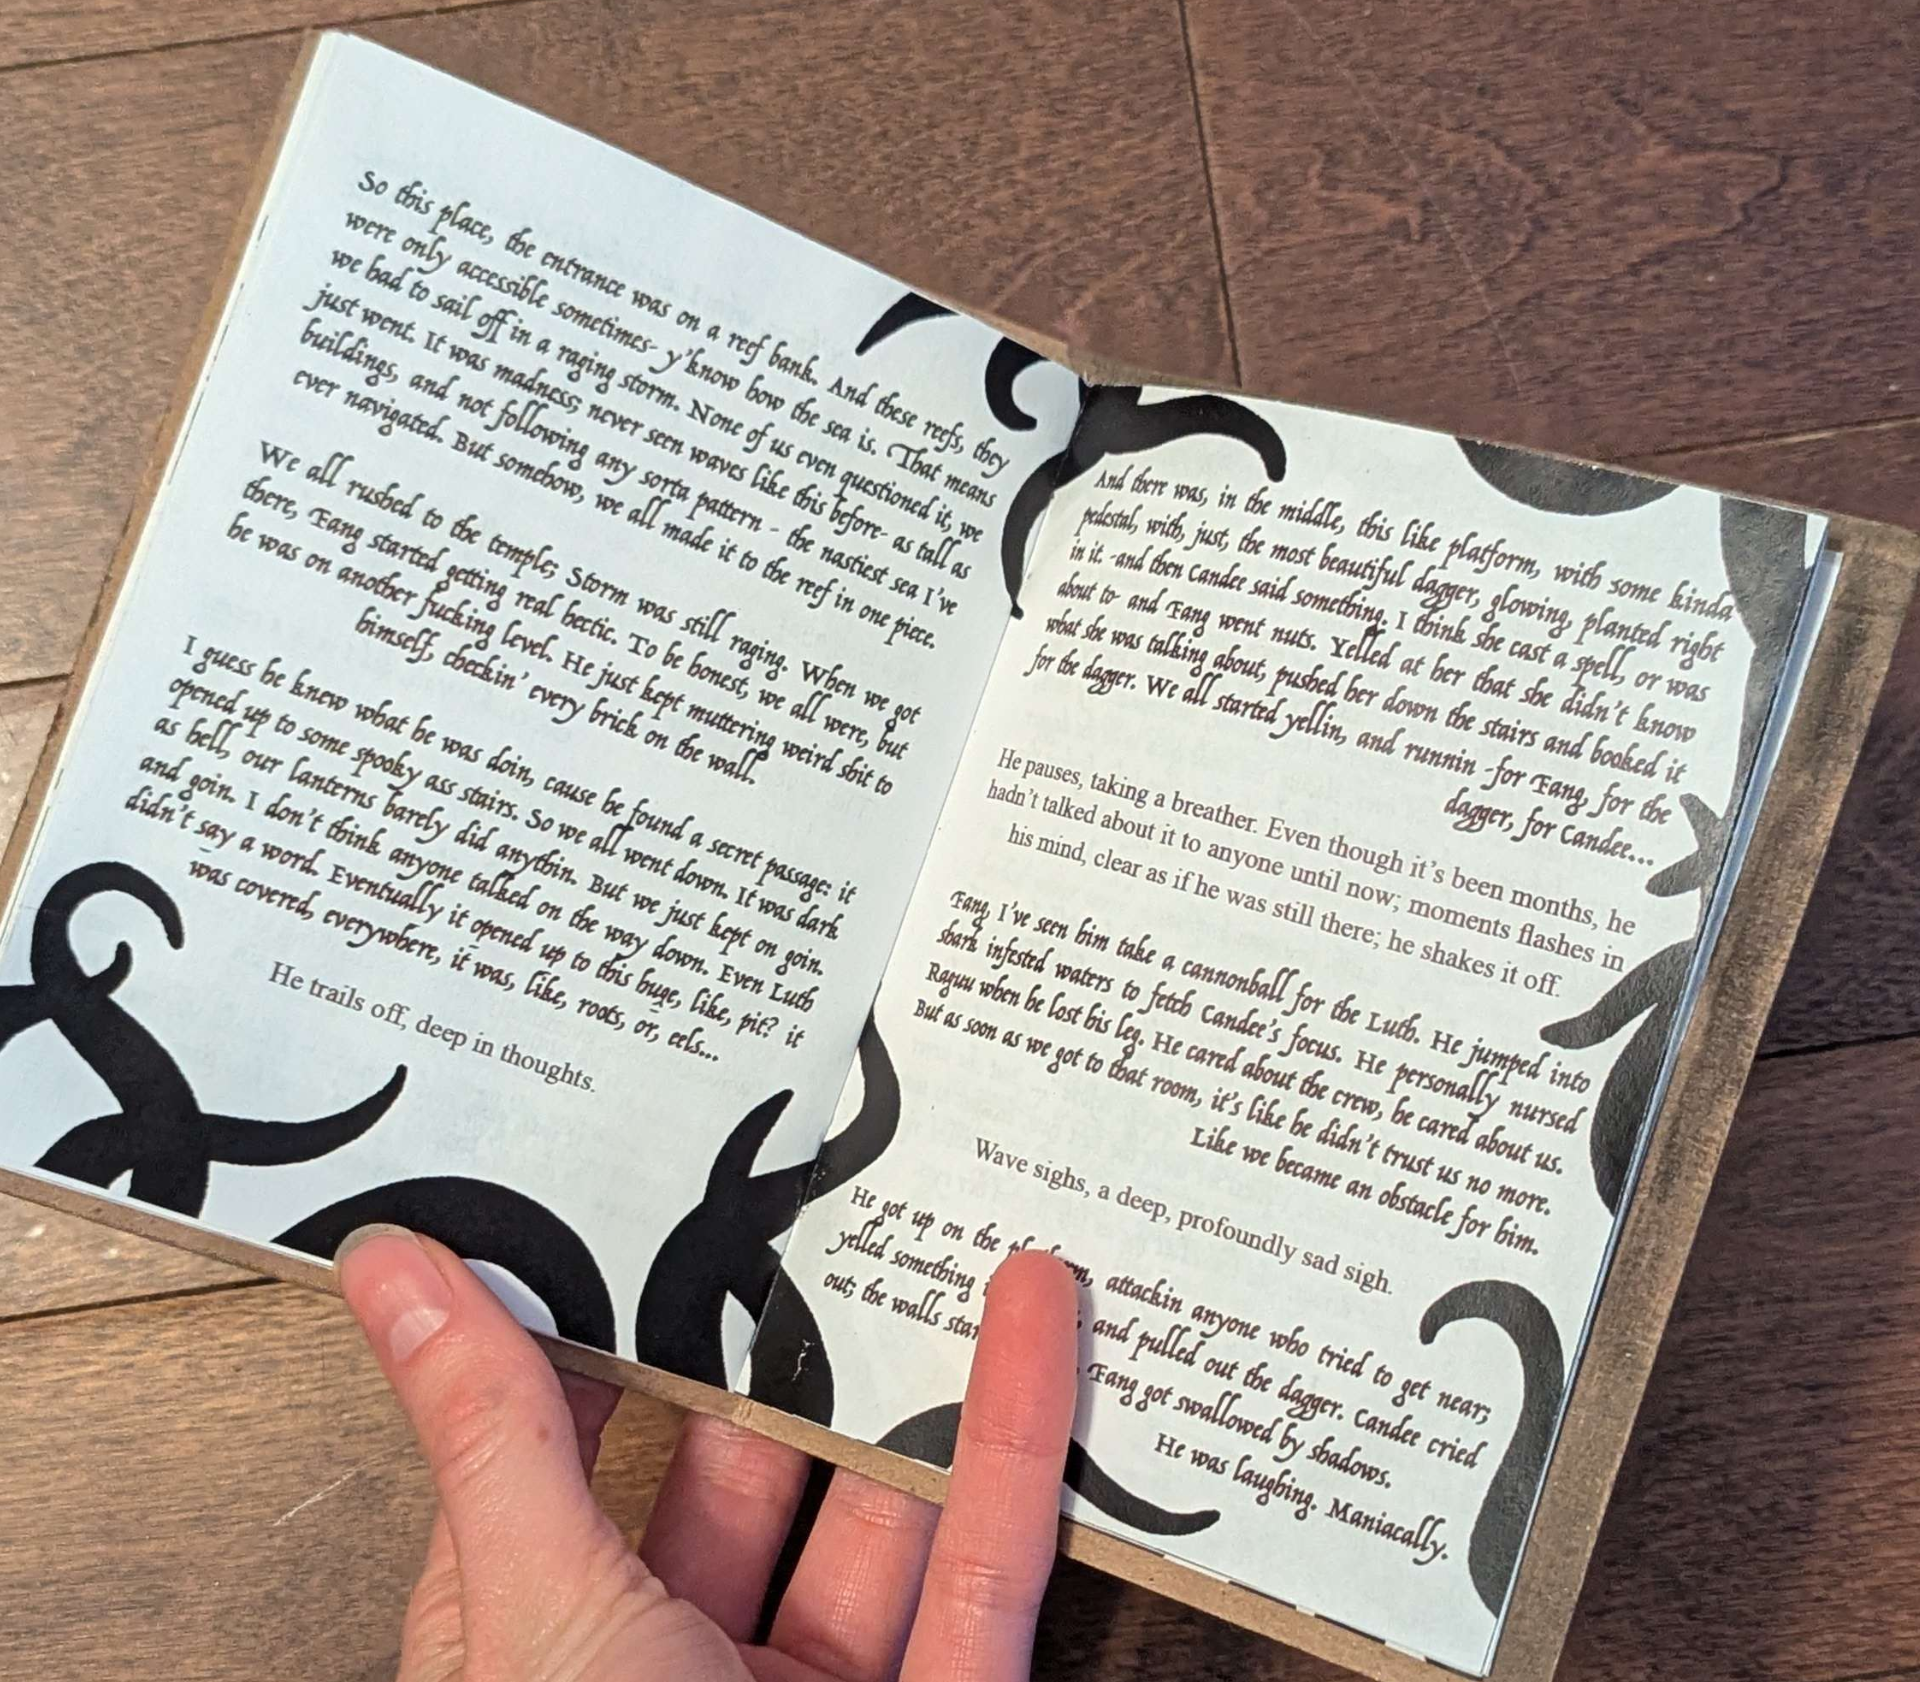 So this place, the entrance was on a reef bank. And these reefs, they
were only accessible sometimes- y'know how the sea is. That means
we had to sail off in a raging storm. None of us even questioned it, we
just went. It was madness; never seen waves like this before- as tall as
buildings, and not following any sorta pattern - the nastiest sea I've
ever navigated. But somehow, we all made it to the reef in one piece.
We all rushed to the temple; Storm was still raging. When we got
there, Fang started getting real hectic. To be honest, we all were, but
he was on another fucking level. He just kept muttering weird shit to
himself, checkin' every brick on the wall.
I guess he knew what he was doin, cause he found a secret passage: it
opened up to some spooky ass stairs. So we all went down. It was dark
as hell, our lanterns barely did anythin. But we just kept on goin.
and goin. I don't think anyone talked on the way down. Even Luth
didn't say a word. Eventually it opened up to this huge, like, pit? it
was covered, everywhere, it was, like, roots, or, eels...
He trails off, deep in thoughts.
And there was, in the middle, this like platform, with some kinda
pedestal, with, just, the most beautiful dagger, glowing, planted right
in it. -and then Candee said something. I think she cast a spell, or was
about to- and Fang went nuts. Yelled at her that she didn't know
what she was talking about, pushed her down the stairs and booked it
for the dagger. We all started yellin, and runnin -for Fang, for the
dagger, for Candee...
He pauses, taking a breather. Even though it's been months, he
hadn't talked about it to anyone until now; moments flashes in
his mind, clear as if he was still there; he shakes it off.
Fang, I've seen him take a cannonball for the Luth. He jumped into
shark infested waters to fetch Candee's focus. He personally nursed
Raguu when he lost his leg. He cared about the crew, he cared about us.
But as soon as we got to that room, it's like he didn't trust us no more.
Like we became an obstacle for him.
Wave sighs, a deep, profoundly sad sigh.
He got up on the attackin anyone who tried to get near;
yelled something and pulled out the dagger. Candee cried
out; the walls Fang got swallowed by shadows.
He was laughing. Maniacally.